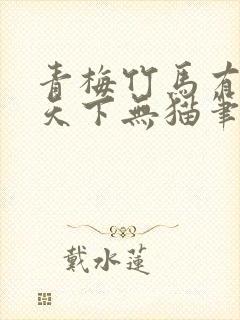 青梅竹馬有
天下無貓筆
戴水蓮